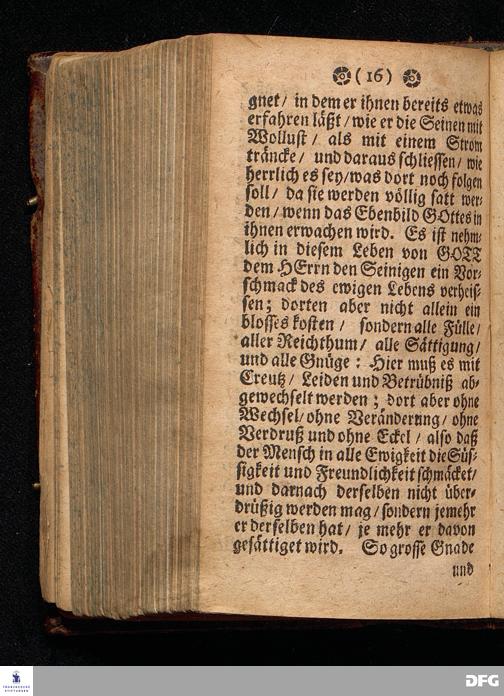 (16)
gnet/ in dem er ihnen bereits etwas
erfahren läßt/ wie er die Seinen mit
Wollust/ als mit einem Strom
träncke/ und daraus schliessen/ wie
herrlich es sey/ was dort noch folgen
soll/ da sie werden völlig satt wer-
den/ wenn das Ebenbild GOttes in
ihnen erwachen wird. Es ist nehm-
lich in diesem Leben von GOTT
dem HErrn den Seinigen ein Vor-
schmack des ewigen Lebens verheis-
sen; dorten aber nicht allein ein
blosses kosten/ sondern alle Fülle/
aller Reichthum/ alle Sättigung/
und alle Gnüge: Hier muß es mit
Creutz/ Leiden und Betrübniß ab-
gewechselt werden; dort aber ohne
Wechsel/ ohne Veränderung/ ohne
Verdruß und ohne Eckel/ also daß
der Mensch in alle Ewigkeit die Süs-
sigkeit und Freundlichkeit schmäcket/
und darnach derselben nicht über-
drüßig werden mag/ sondern jemehr
er derselben hat/ je mehr er davon
gesättiget wird. So grosse Gnade
und
FRANCKESCHE
STIFTUNGEN
DFG